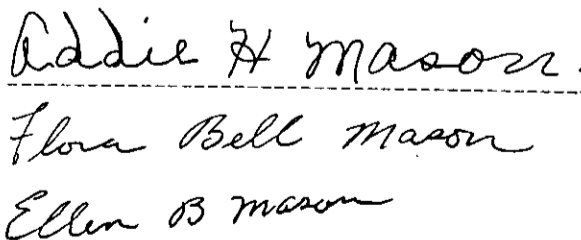 Addie H Mason.
Flora Bell Mason
Ellen B Mason